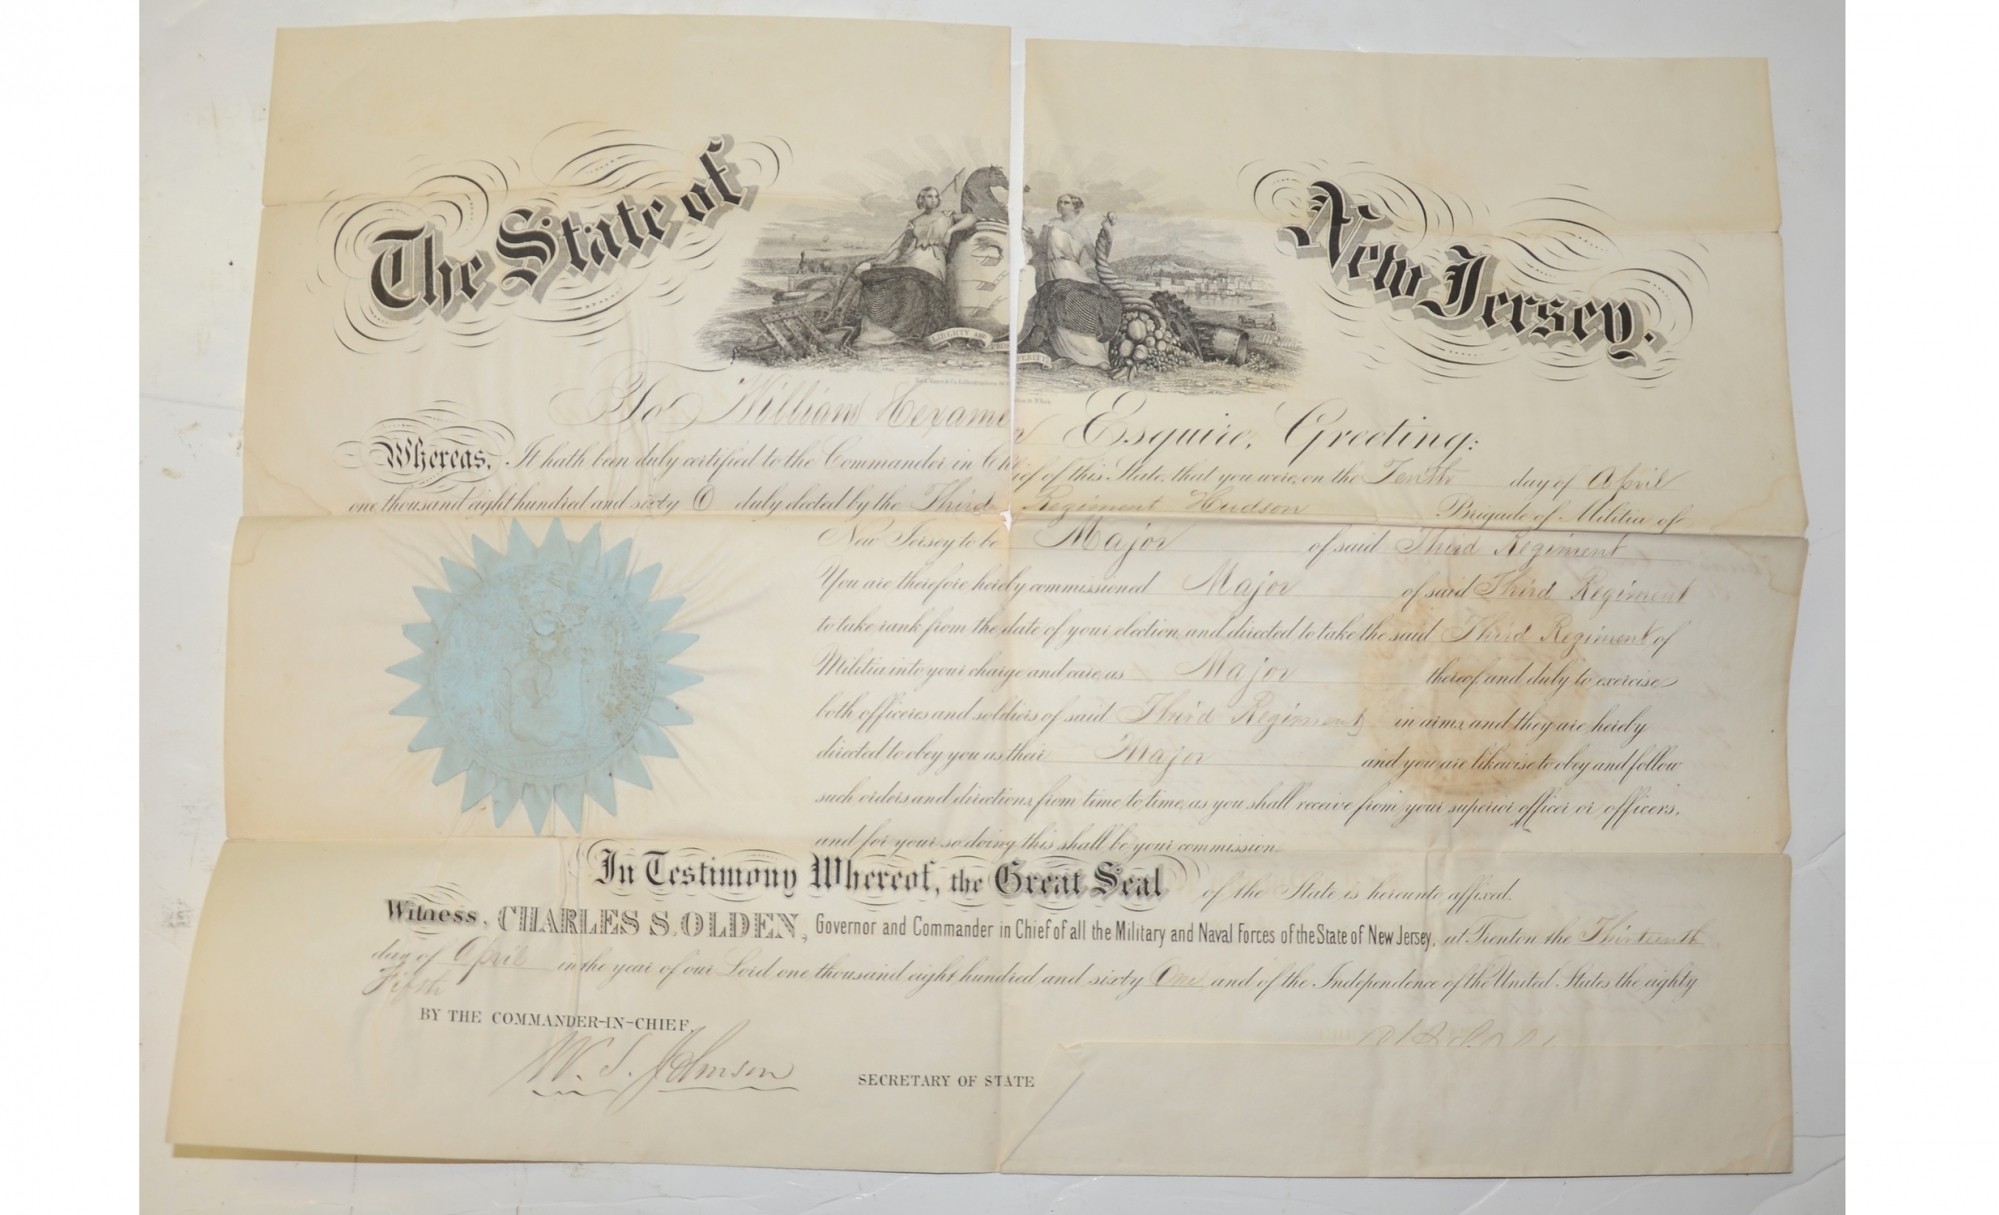 The State of New Jersey.
LIBERTY AND PROSPERITY
To William Hexamer Esquire, Greeting:
Whereas, It hath been duly certified to the Commander in Chief of this State, that you were, on the Tenth day of April
one thousand eight hundred and sixty O duly elected by the Third Regiment Hudson Brigade of Militia of
New Jersey to be Major of said Third Regiment
You are therefore hereby commissioned Major of said Third Regiment
to take rank from the date of your election, and directed to take the said Third Regiment of
Militia into your charge and care, as Major thereof and duly to exercise
both officers and soldiers of said Third Regiment in arms, and they are hereby
directed to obey you as their Major and you are likewise to obey and follow
such orders and directions, from time to time, as you shall receive from your superior officer or officers,
and for your so doing this shall be your commission.
In Testimony Whereof, the Great Seal of the State is hereunto affixed.
Witness, CHARLES S. OLDEN, Governor and Commander in Chief of all the Military and Naval Forces of the State of New Jersey, at Trenton the Thirteenth
day of April in the year of our Lord one thousand eight hundred and sixty One and of the Independence of the United States the eighty
Fifth
BY THE COMMANDER-IN-CHIEF,
W. S. Johnson
SECRETARY OF STATE